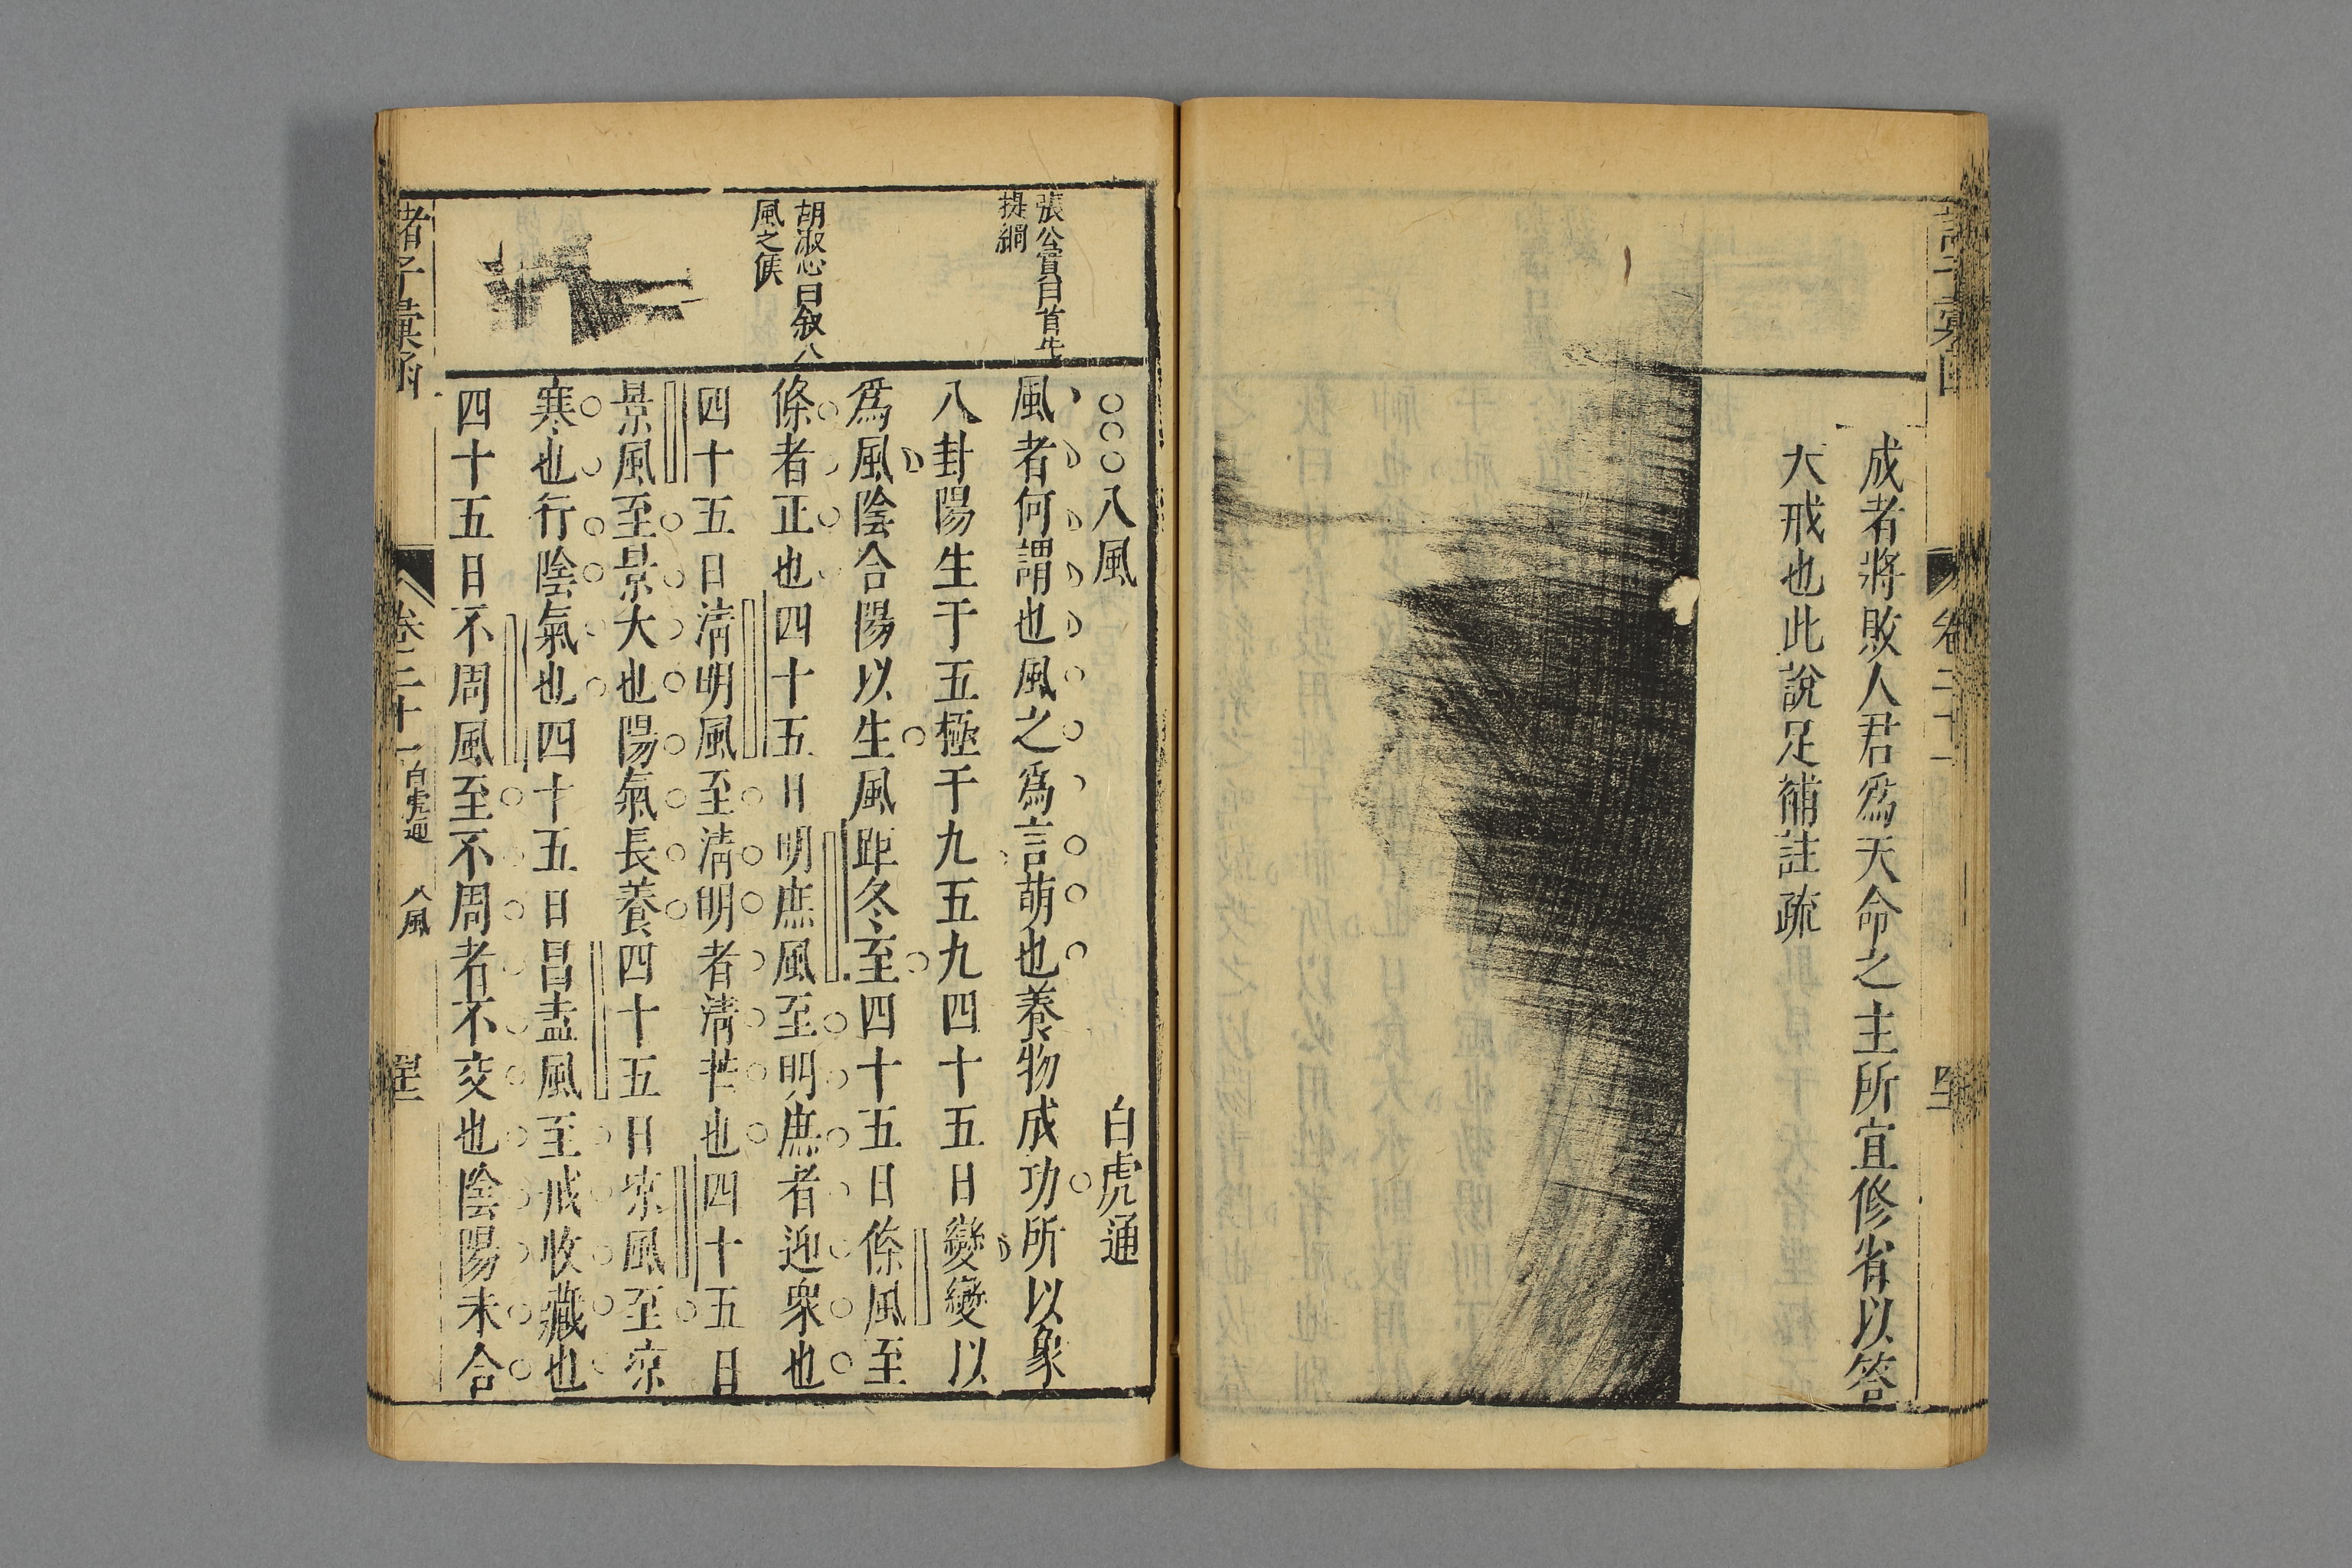 成者將敗人君爲天命之主所宜修省以答
大戒也此說足補註疏
卷二十一
張公實曰首先
提綱
胡淑心曰敘八
風之候
○○○八風 白虎通
風者何謂也風之爲言萌也養物成功所以象
八卦陽生于五極于九五九四十五日變變以
爲風陰合陽以生風距冬至四十五日條風至
條者正也四十五日明庶風至明庶者迎衆也
四十五日清明風至清明者淸芒也四十五日
景風至景大也陽氣長養四十五日凉風至凉
寒也行陰氣也四十五日昌盍風至戒收藏也
四十五日不周風至不周者不交也陰陽未合
諸子彙函
卷二十一
白虎通
八風